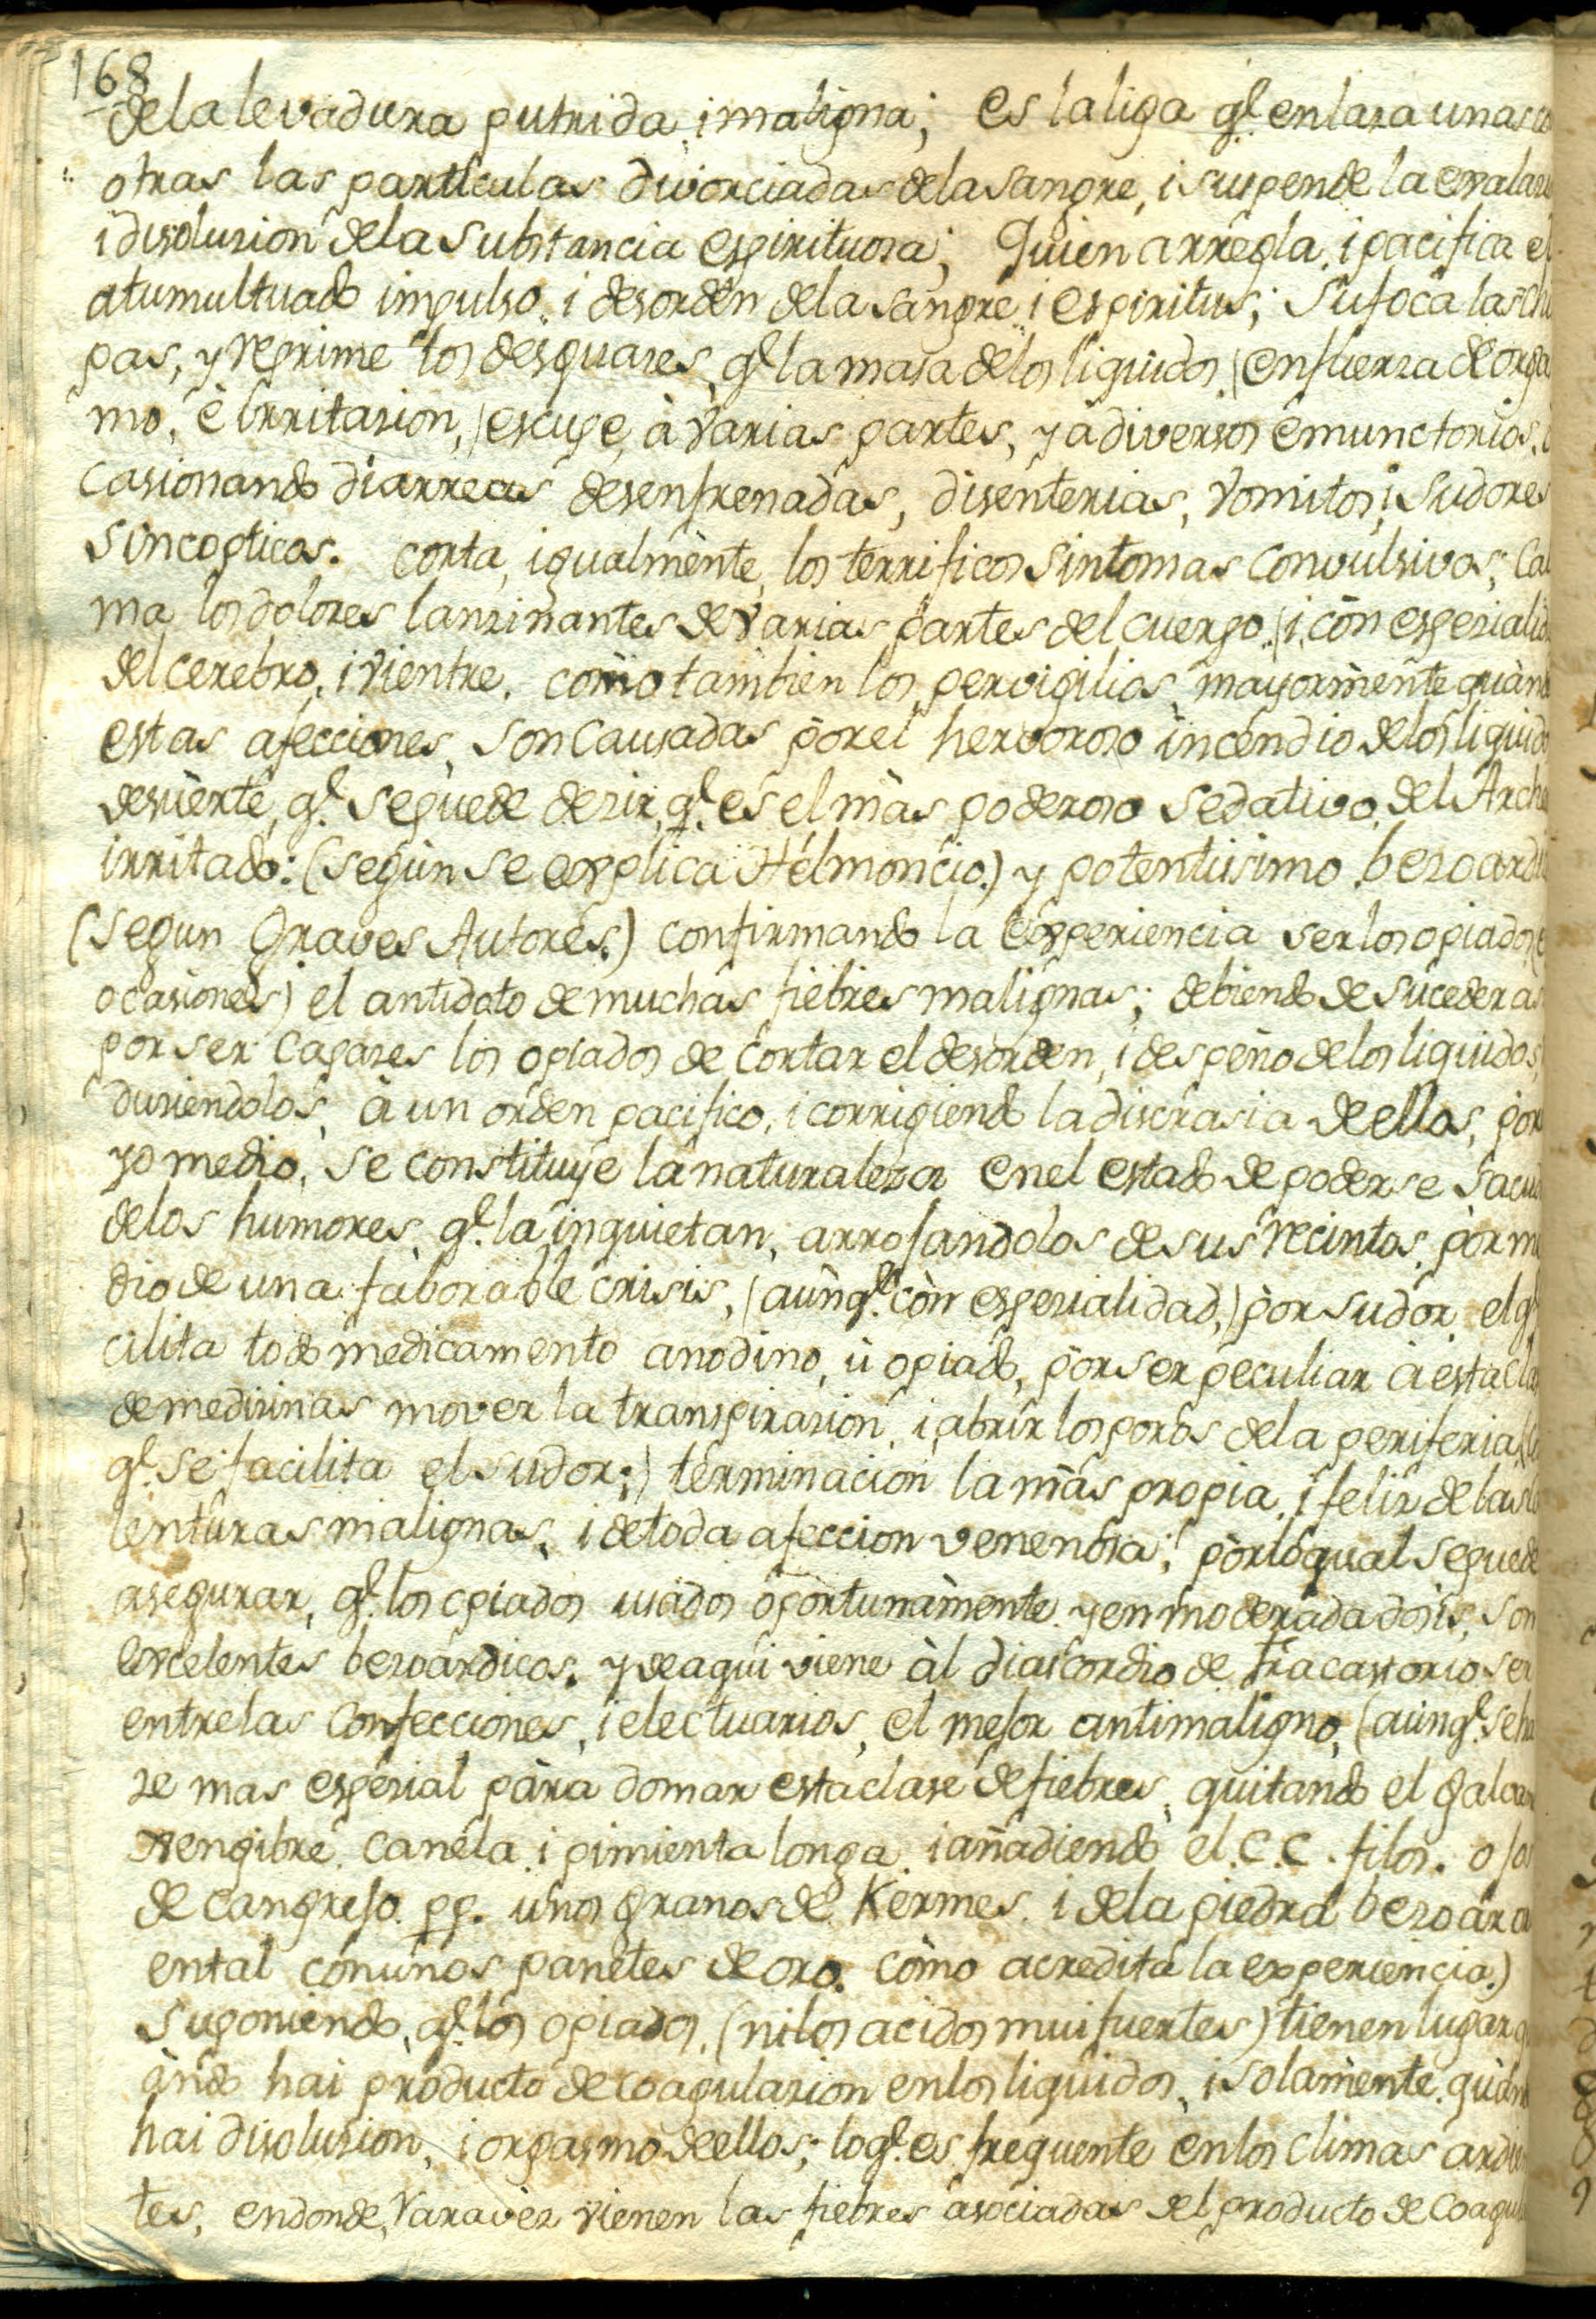 168
de la levadura putrida, i maligna; es la liga q.e enlaza unas co
otras las particulas divorciadas de la sangre, i suspende la exalazi
i disoluzion de la substancia espirituosa; Quien arregla, i pacifica el
atumultuado impulso, i desorden de la sangre i espiritus; Sufoca las chu
pas, y reprime los desguazes, q.e la masa de los liquidos (en fuerza de orgas
mo, è irritazion,) escupe, à varias partes, y a diversos emunctorios,
casionando diarreas desenfrenadas, disenterias, vomitos, i sudores
sincopticos. corta, igualmènte, los terrificos sintomas convulsivos; cal
ma los dolores lanzinantes de varias partes del cuerpo, (i, còn espezialid
del cerebro, i vientre, còmo tambien los pervigilios, mayormènte quàndo
estas afecciones, son causadas pòr el hervoroso incendio de los liquido
desuèrte, q.e se puede dezir, q.e es el màs poderoso sedativo, del Arche
irritado: (segùn se explica Hèlmoncio.) y potentissimo bezoardi
(segun Graves Autores.) confirmando la experiencia ser los opiados, (
ocasiones) el antidoto de muchas fiebres malignas; debiendo de suceder as
por ser capazes los opiados de cortar el desorden, i despeño de los liquidos,
duziendolos, à un orden pacifico, i corrigiendo la discrasia de ellos, pòr
yo medio, se constituye la naturaleza en el estado de poderse sacud
de los humores, q.e la inquietan, arrojandolos de sus recintos, pòr me
dio de una faborable crisis, (aùnq.e còn espezialidad,) pòr sudor, el q.e
cilita todo medicamento anodino, ù opiado, pòr ser peculiar à esta clas
de medizinas mover la transpirazion, i abrir los poros de la periferia, (
q.e se facilita el sudor;) terminacion la màs propia, i feliz de las
lenturas malignas, i de toda afeccion venenosa; pòr lo qual se puede
asegurar, q.e los opiados usados oportunamènte, y en moderada dosis, son
excelentes bezoardicos. y de aqui viene àl diascordio de Fracastorio ser
entre las confecciones, i electuarios, el mejor antimaligno, (aùnq.e se ha
ze mas espezial pàra domar esta clase de fiebres, quitando el galban
xengibre, canela, i pimienta longa, i añadiendo el C. C. filos. ojos
de cangrejo pp. unos granos de Kermes, i de la piedra bezoar o
ental còn unos panetes de oro. còmo acredita la experiencia.)
suponiendo, q.e los opiados, (ni los acidos mui fuertes) tienen lugar
àndo hai producto de coagulazion en los liquidos, i solamènte quàndo
hai disoluzion, i orgasmo de ellos; lo q.e es frequente en los climas ardien
tes, en donde, rara vèz vienen las fiebres asociadas del producto de coagula